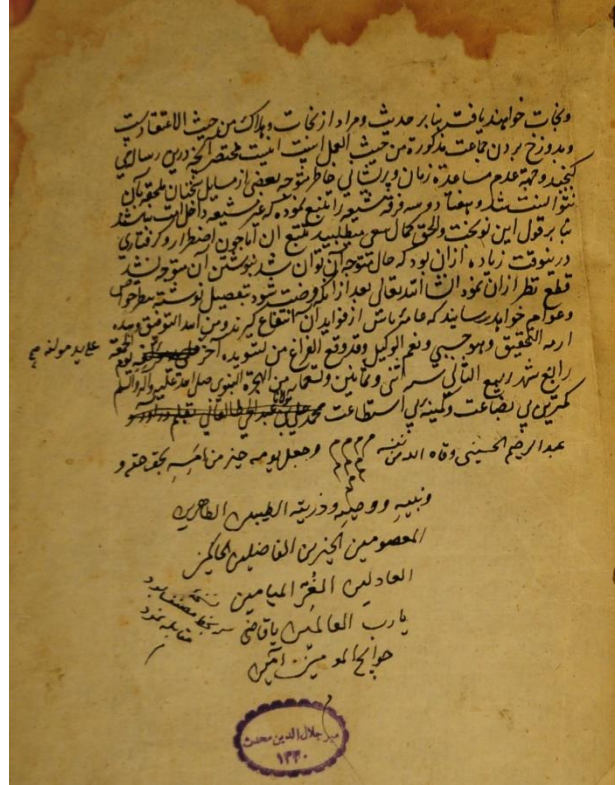 ونجات خواهند یافت بنا بر حدیث و مراد از نجات و هلاک من حیث الاعتقادست
و بدوزخ بردن جماعت مذکوره من حیث العمل اینست آنچه درین رساله
و جهة عدم مساعدة زمان و پریشانی خاطر متوجه بعضی از مسایل سخنان ملحقه بآن
نتوانست شد و هفتاد و سه فرقه شیعه را تتبع نموده که غیر شیعه داخل
بنا بر قول ابن نوبخت والحق کمال سعی میطلبید تتبع آن اما چون اضطرار و گرفتاری
درینوقت زیاده از آن بود که حال متوجه آن توان شد بنوشتن آن متوجه نشد
قطع نظر از آن نمود انشاءالله تعالی بعد از آنکه فرصت شود بتفصیل نوشته بنظر خواص
وعوام خواهد رسانید که عامهٔ ناس از فواید آن انتفاع گیرند ومن الله التوفیق وبیده
ازمة التحقیق وهو حسبی ونعم الوکیل وقد وقع الفراغ من تسویده آخر یوم الجمعة
علی ید مولفه
رابع شهر ربیع الثانی سنه اثنی وثمانین وتسعمائة من الهجرة النبوی صلی الله علیه وآله وسلم
کمترین بی بضاعت وکمینه بی استطاعت
عبدالرحیم الحسینی وقاه الله من وجعل یومه خیر من امسه بحق حقه و
ونبیه ووصیه وذریته الطیبین الطاهرین
المعصومین الخیرین الفاضلین الحاکمین
العادلین الغُرّ المیامین
یا رب العالمین یا قاضی
حوایج المومنین آمین
نسخه
بخط مصنف بود
مقابله نمود
میر جلال الدین محدث
۱۳۳۰